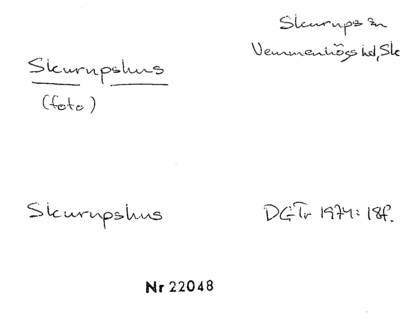 Skurups sn
Vemmenhögs hd, Sk
Skurupshus
(foto)
Skurupshus
DGTr 1974: 18f.
Nr 22048